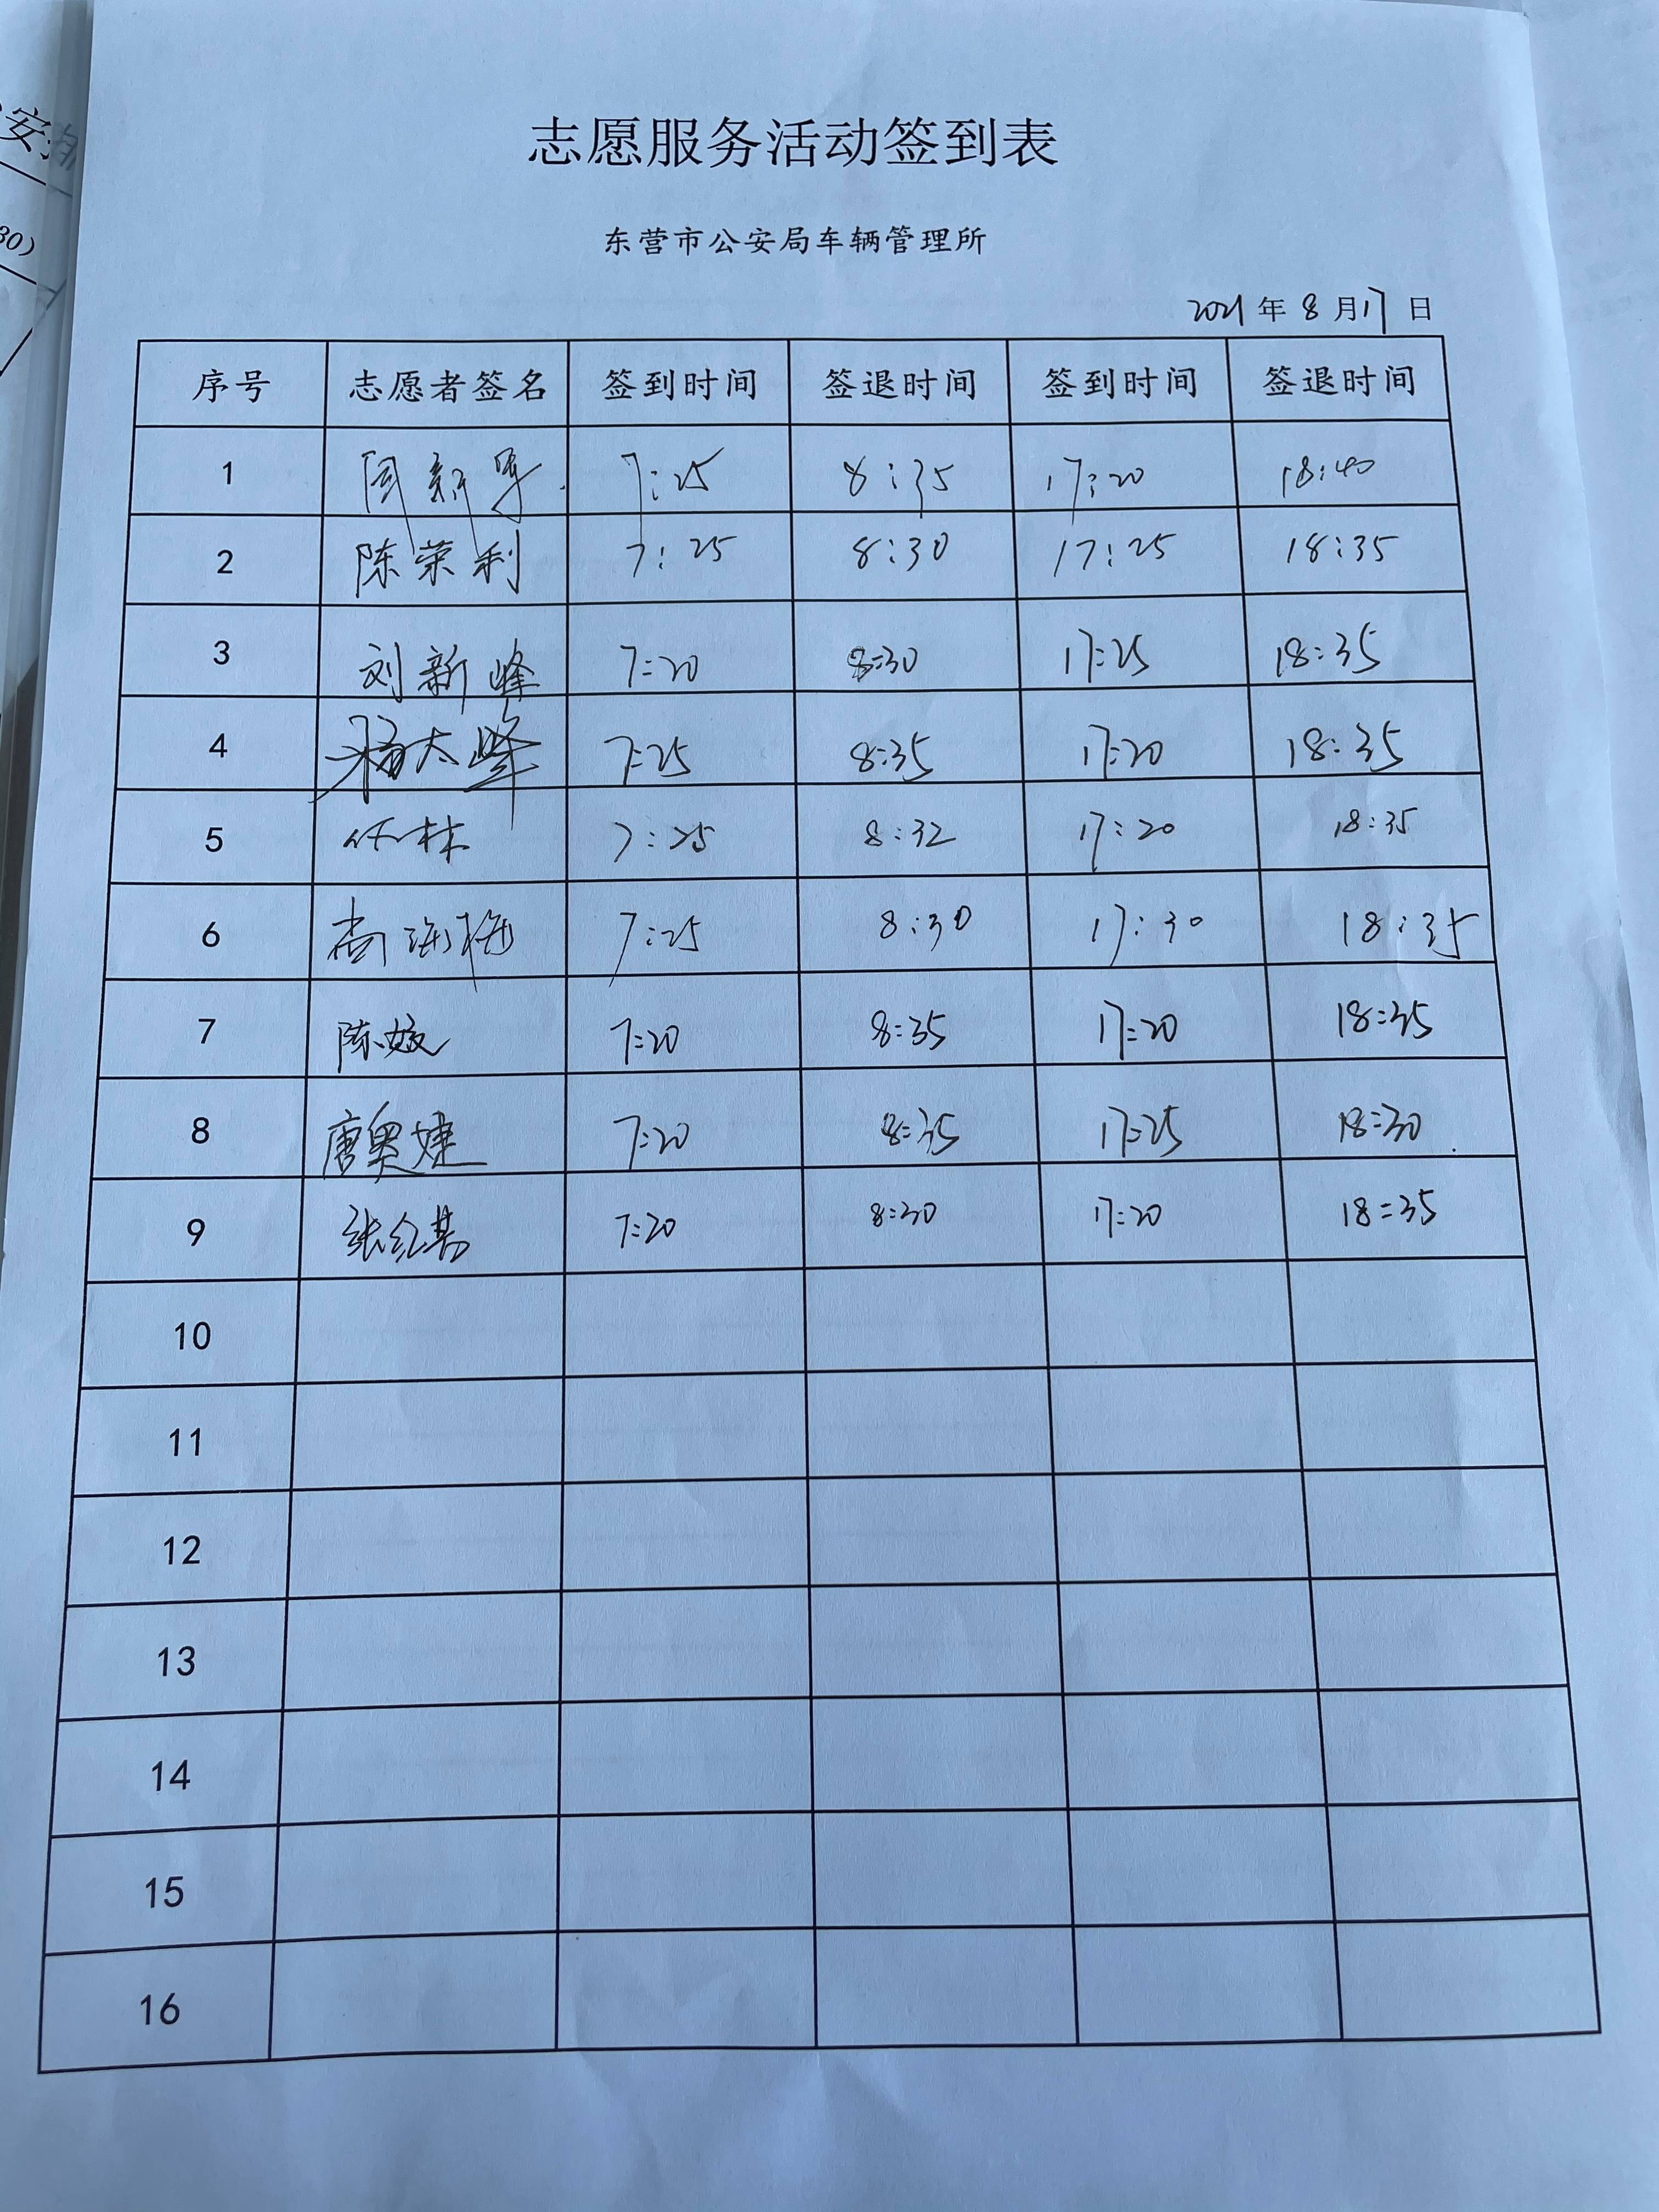 志愿服务活动签到表
东营市公安局车辆管理所
2021年8月17日
序号 志愿者签名 签到时间 签退时间 签到时间 签退时间
1 周新军 7:25 8:35 17:20 18:40
2 陈荣利 7:25 8:30 17:25 18:35
3 刘新峰 7:20 8:30 17:25 18:35
4 杨太峰 7:25 8:35 17:20 18:35
5 任林 7:25 8:32 17:20 18:35
6 尚海梅 7:25 8:30 17:30 18:35
7 陈 7:20 8:35 17:20 18:35
8 唐奥婕 7:20 8:35 17:25 18:30
9 张红 7:20 8:30 17:20 18:35
10
11
12
13
14
15
16